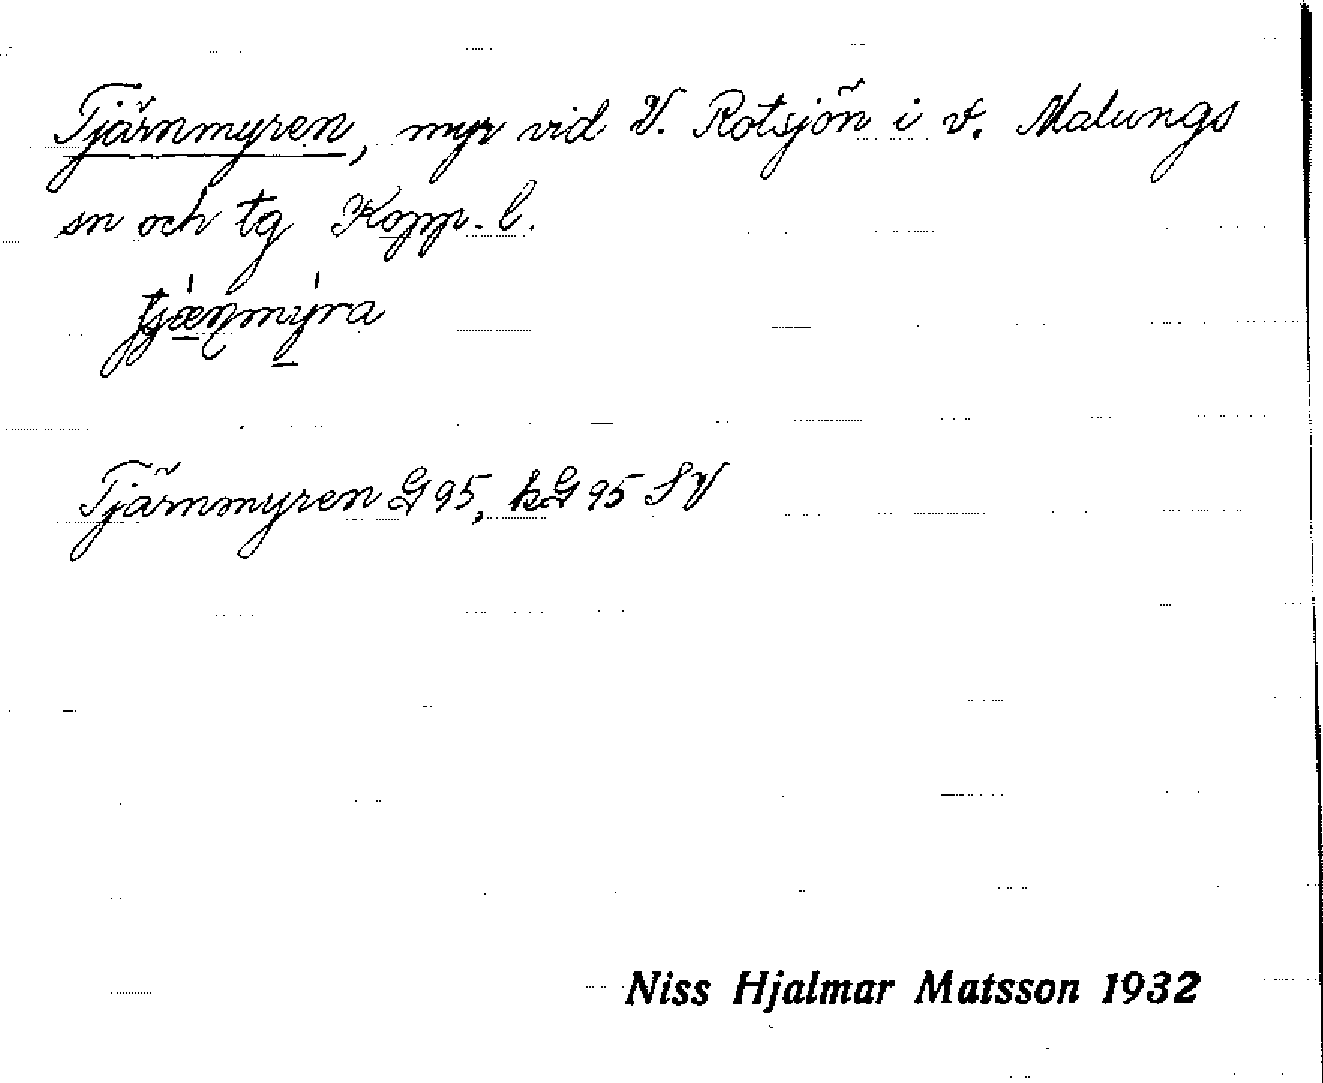 Tjärnmyren, myr vid V. Rotsjön i v. Malungs
sn och tg Kopp. l.
Tjärnmyren G 95, kG 95 SV
Niss Hjalmar Matsson 1932